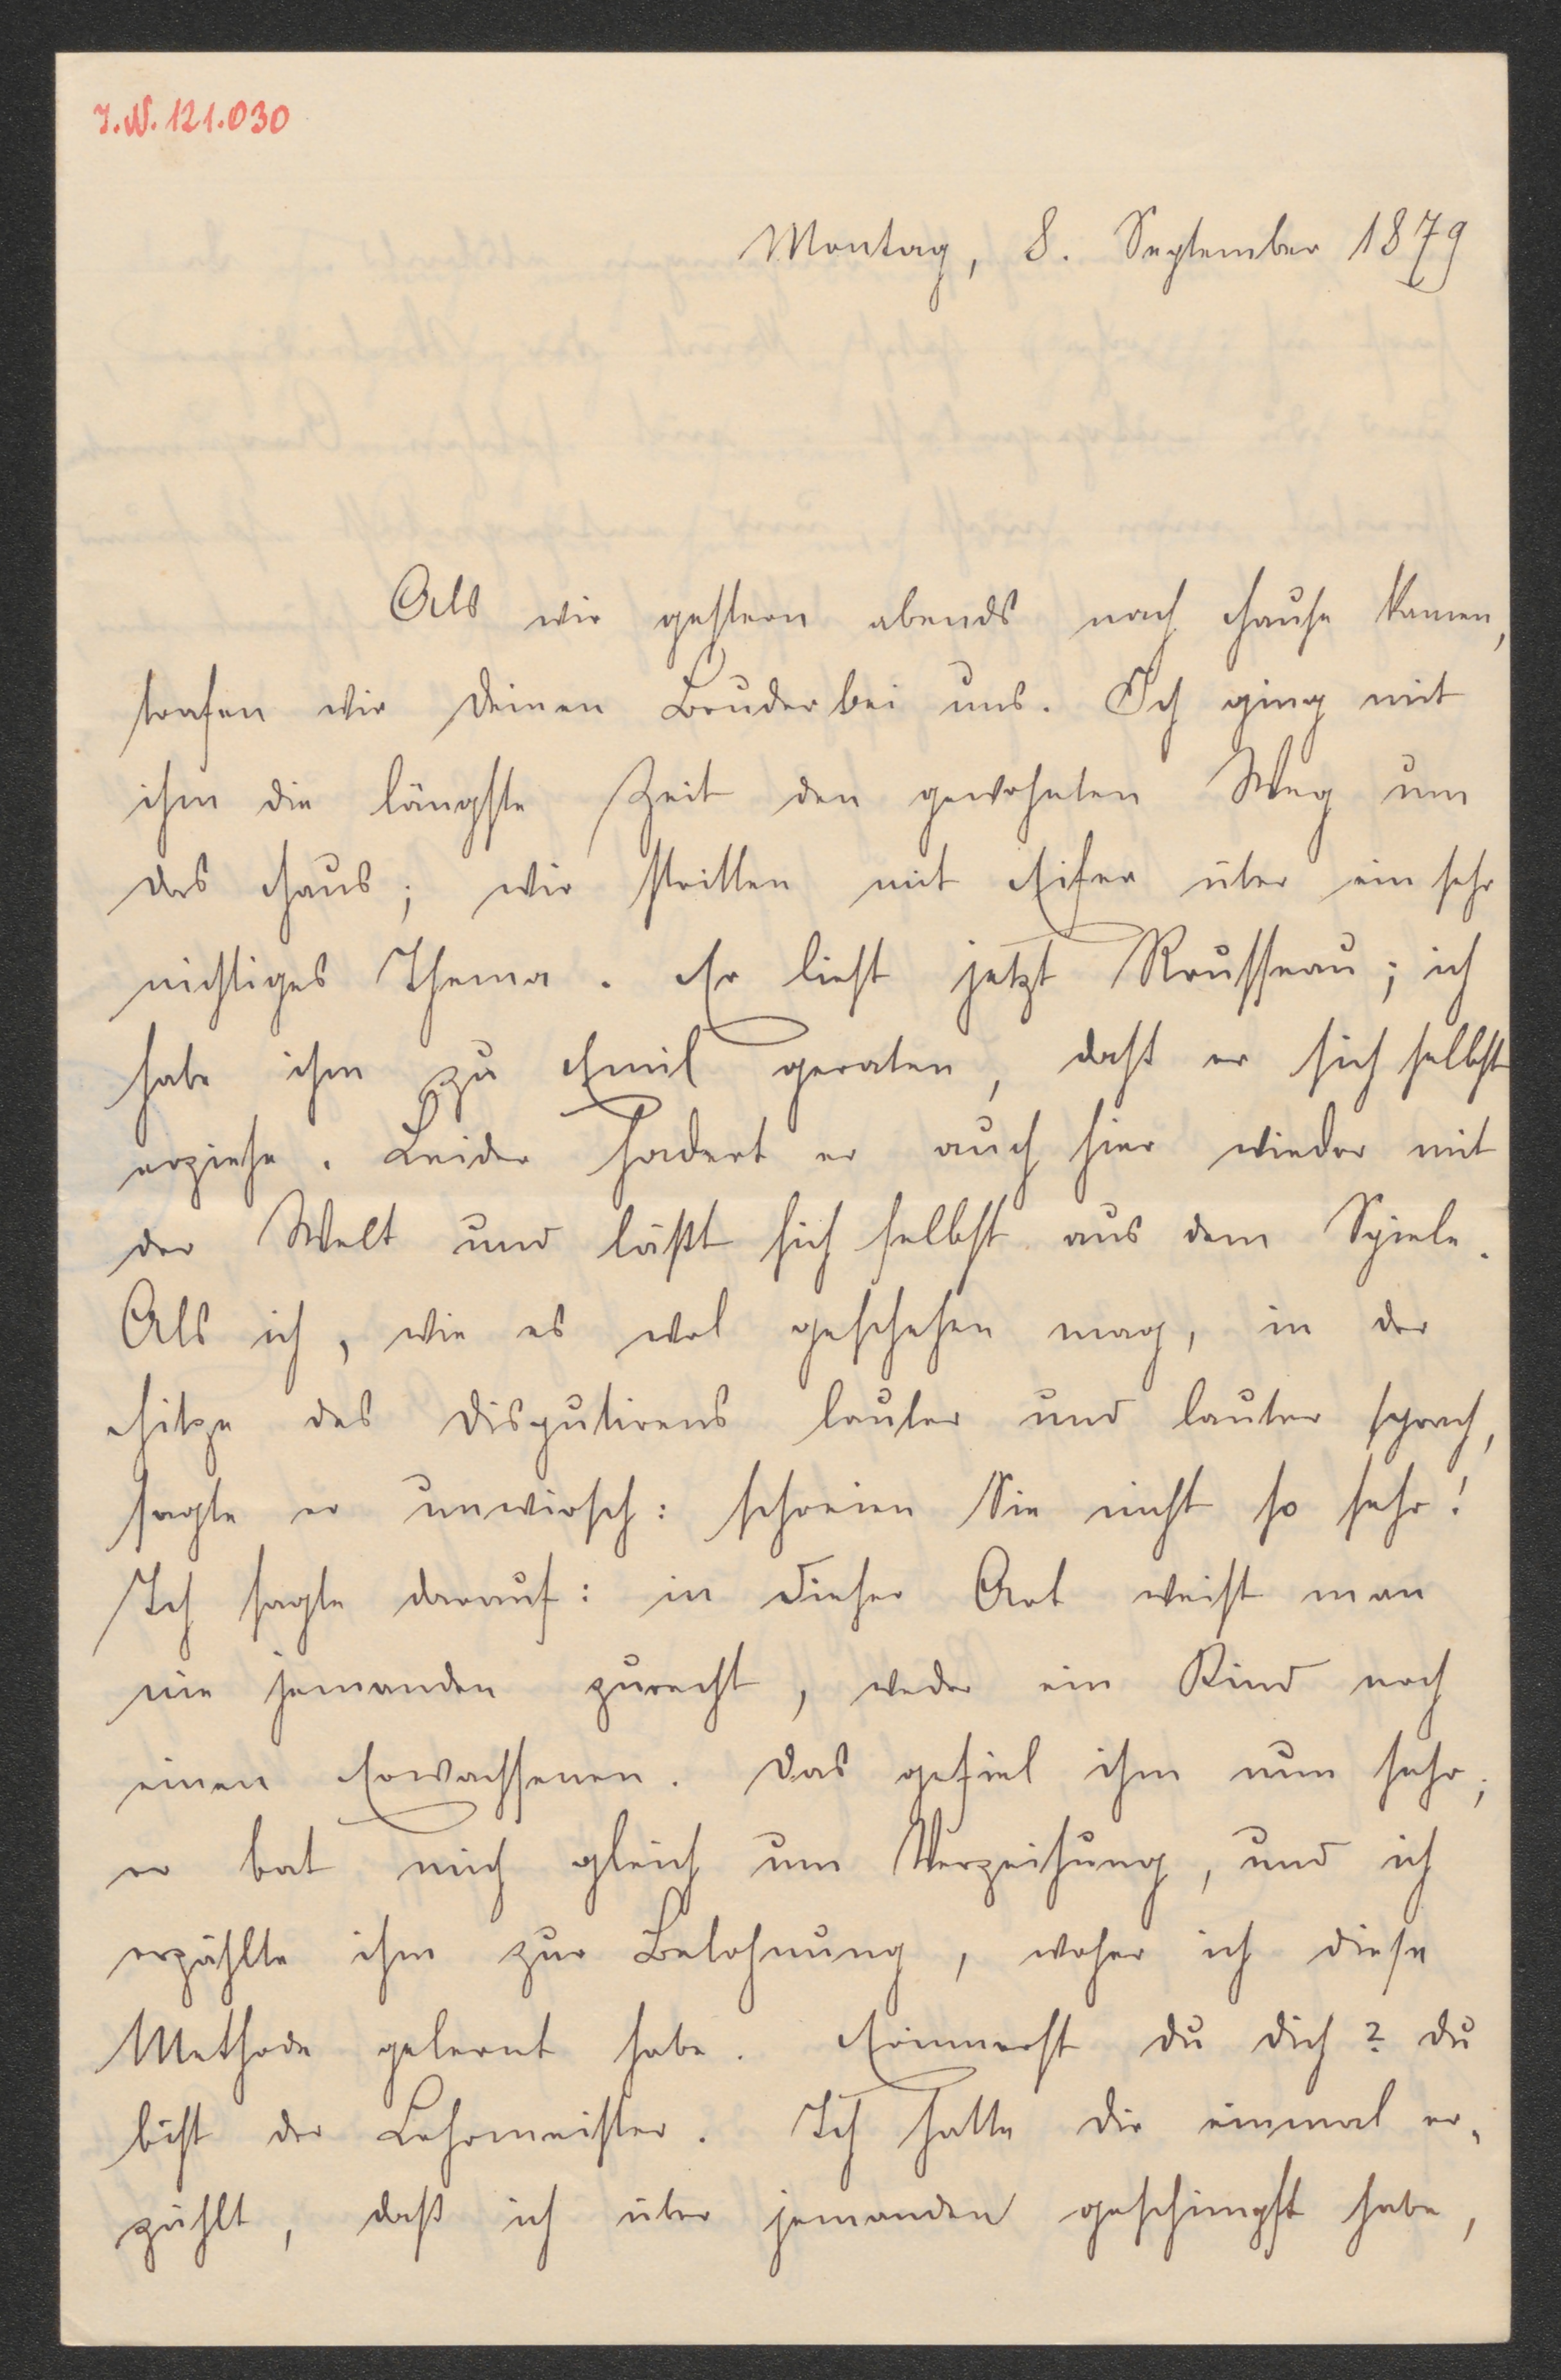 J.N. 121.030
Montag, 8. September 1879
Als wir gestern abends nach Hause kamen,
trafen wir Deinen Bruder bei uns. Ich ging mit
ihm die längste Zeit den gewohnten Weg um
das Haus; wir stritten mit Eifer über ein sehr
nichtiges Thema. Er liest jetzt Rousseau; ich
habe ihm zu Emil geraten, daß er sich selbst
erziehe. Leider hadert er auch hier wieder mit
der Welt und läßt sich selbst aus dem Spiele.
Als ich, wie es wol geschehen mag, in der
Hitze des Disputirens lauter und lauter sprach,
sagte er unwirsch: schreien Sie nicht so sehr!
Ich sagte darauf: in dieser Art weist man
nie jemanden zurecht, weder ein Kind noch
einen Erwachsenen. Das gefiel ihm nun sehr;
er bat mich gleich um Verzeihung, und ich
erzählte ihm zur Belohnung, woher ich diese
Methode gelernt habe. Erinnerst du dich? du
bist der Lehrmeister. Ich hatte dir einmal er-
zählt, daß ich über jemanden geschimpft habe,